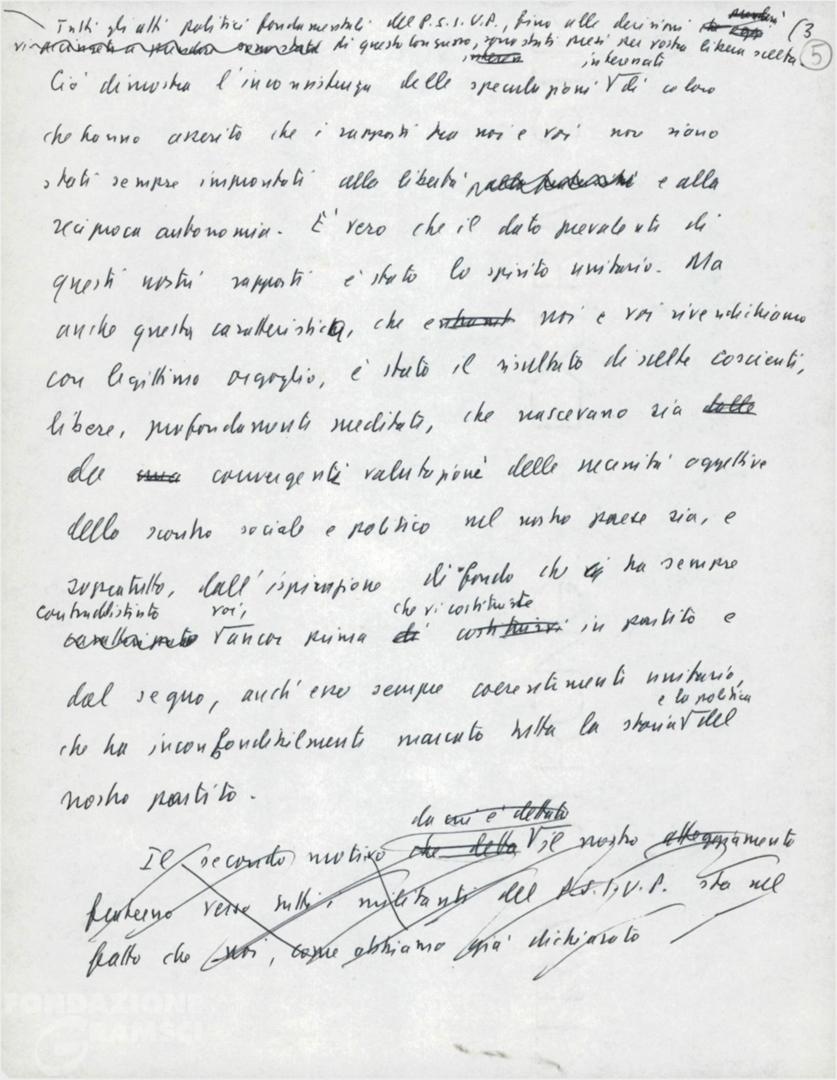 Tutti gli atti politici fondamentali del P.S.I.U.P., fino alle decisioni (3
di questo Congresso, sono stati presi per vostra libera scelta. 5
interessati
Ciò dimostra l'inconsistenza delle speculazioni di coloro
che hanno asserito che i rapporti tra noi e voi non siano
stati sempre improntati alla libertà e alla
reciproca autonomia. È vero che il dato prevalente di
questi nostri rapporti è stato lo spirito unitario. Ma
anche questa caratteristica, che noi e voi rivendichiamo
con legittimo orgoglio, è stato il risultato di scelte coscienti,
libere, profondamente meditate, che nascevano sia dalle
da una convergente valutazione delle necessità oggettive
dello scontro sociale e politico nel nostro paese sia, e
soprattutto, dall'ispirazione di fondo che ha sempre
contraddistinto voi, che vi costituiste
caratterizzato ancor prima di costituirvi in partito e
dal segno, anch'esso sempre coerentemente unitario,
e la politica
che ha inconfondibilmente marcato tutta la storia del
nostro partito.
da cui è dettato
Il secondo motivo che detta il nostro atteggiamento
fraterno verso tutti i militanti del P.S.I.U.P. sta nel
fatto che noi, come abbiamo già dichiarato
FONDAZIONE
GRAMSCI